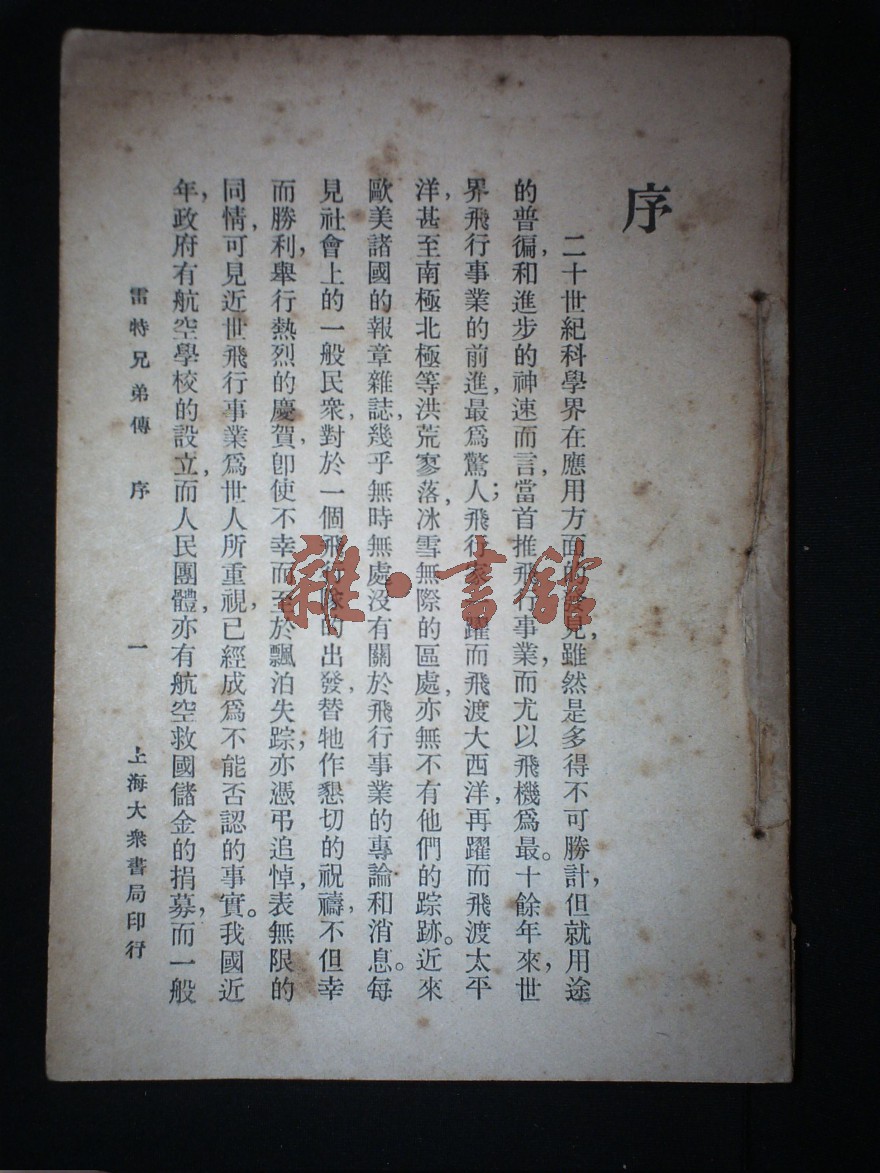 序
二十世紀科學界在應用方面的發見,雖然是多得不可勝計,但就用途
的普徧,和進步的神速而言,當首推飛行事業,而尤以飛機爲最。十餘年來,世
界飛行事業的前進,最爲驚人;飛行家一躍而飛渡大西洋,再躍而飛渡太平
洋,甚至南極北極等洪荒寥落,冰雪無際的區處,亦無不有他們的踪跡。近來
歐美諸國的報章雜誌,幾乎無時無處沒有關於飛行事業的專論和消息。每
見社會上的一般民衆,對於一個飛行隊的出發,替牠作懇切的祝禱,不但幸
而勝利,舉行熱烈的慶賀,卽使不幸而至於飄泊失踪,亦憑弔追悼,表無限的
同情,可見近世飛行事業爲世人所重視,已經成爲不能否認的事實。我國近
年,政府有航空學校的設立,而人民團體,亦有航空救國儲金的捐募,而一般
雷特兄弟傳 序 一 上海大衆書局印行
雜·書館